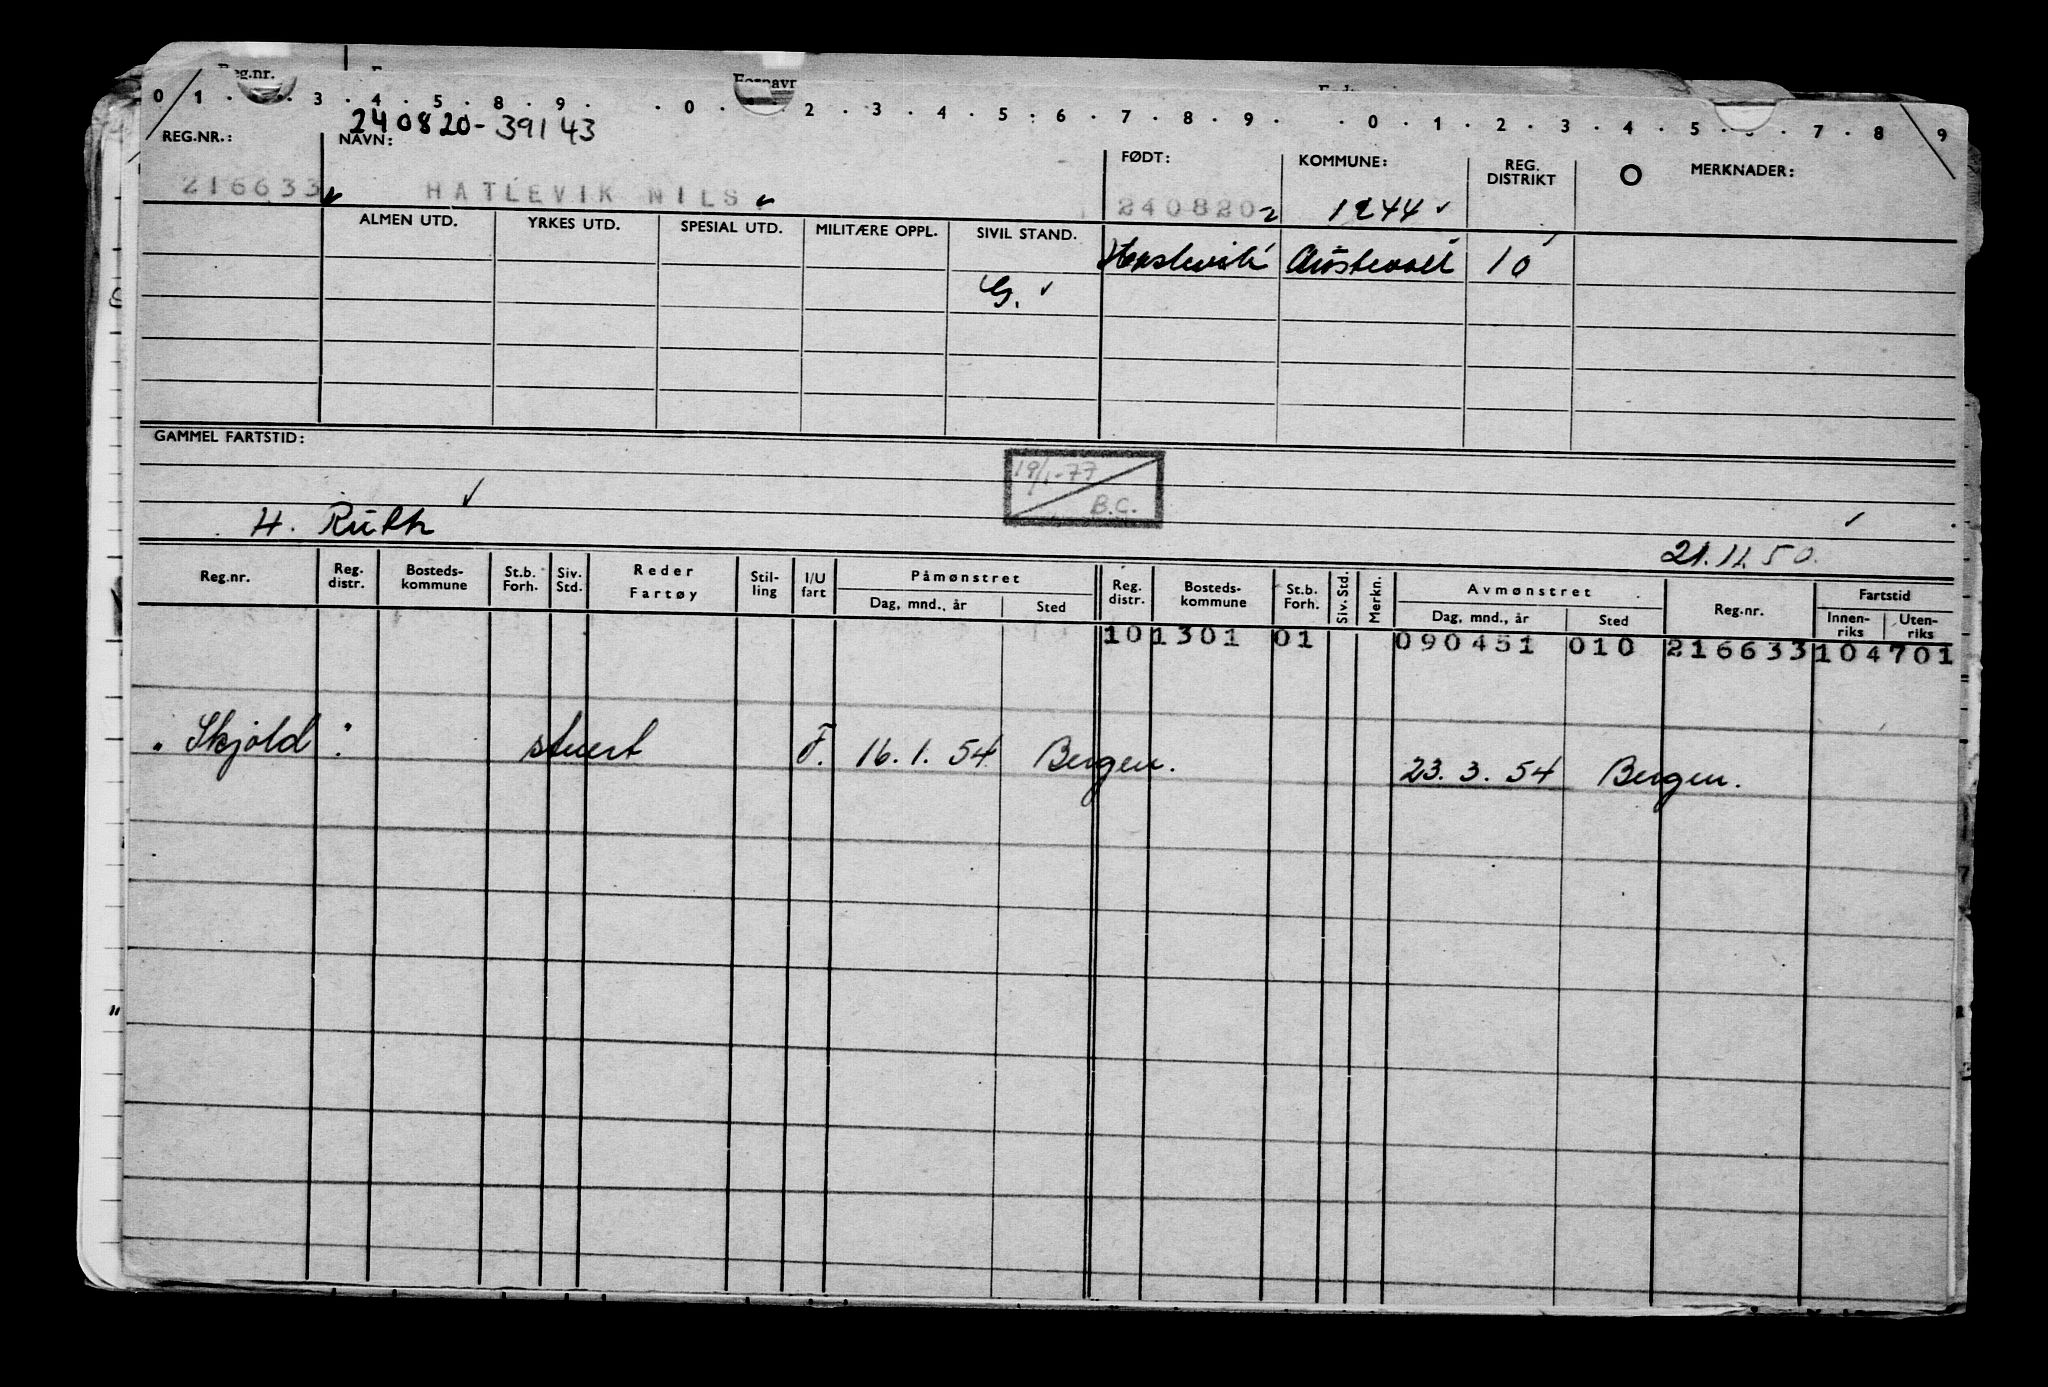 Reg.nr.
Fornavn
0 1 . . 3 . 4 . 5 . 8 . 9 . . 0 . 2 . 3 . 4 . 5 : 6 . 7 . 8 . 9 . . 0 . 1 . 2 . 3 . 4 . 5 . 7 . 8 9
240820-39143
REG.NR.: NAVN: FØDT: KOMMUNE: REG. DISTRIKT MERKNADER:
216633 HATLEVIK NILS 240820 2 1244
ALMEN UTD. YRKES UTD. SPESIAL UTD. MILITÆRE OPPL. SIVIL STAND. Austevoll 10
G.
GAMMEL FARTSTID:
19/1-77
B.C.
H. Ruth
21.11.50.
Reg.nr. Reg. distr. Bosteds-kommune St.b. Forh. Siv. Std. Reder Fartøy Stil-ling I/U fart Påmønstret Dag, mnd., år Sted Reg. distr. Bosteds-kommune St.b. Forh. Siv. Std. Merkn. Avmønstret Dag, mnd., år Sted Reg.nr. Fartstid Innen-riks Uten-riks
10 1301 01 090451 010 216633 104 701
"Skjold" stuert F. 16.1.54 Bergen. 23.3.54 Bergen.